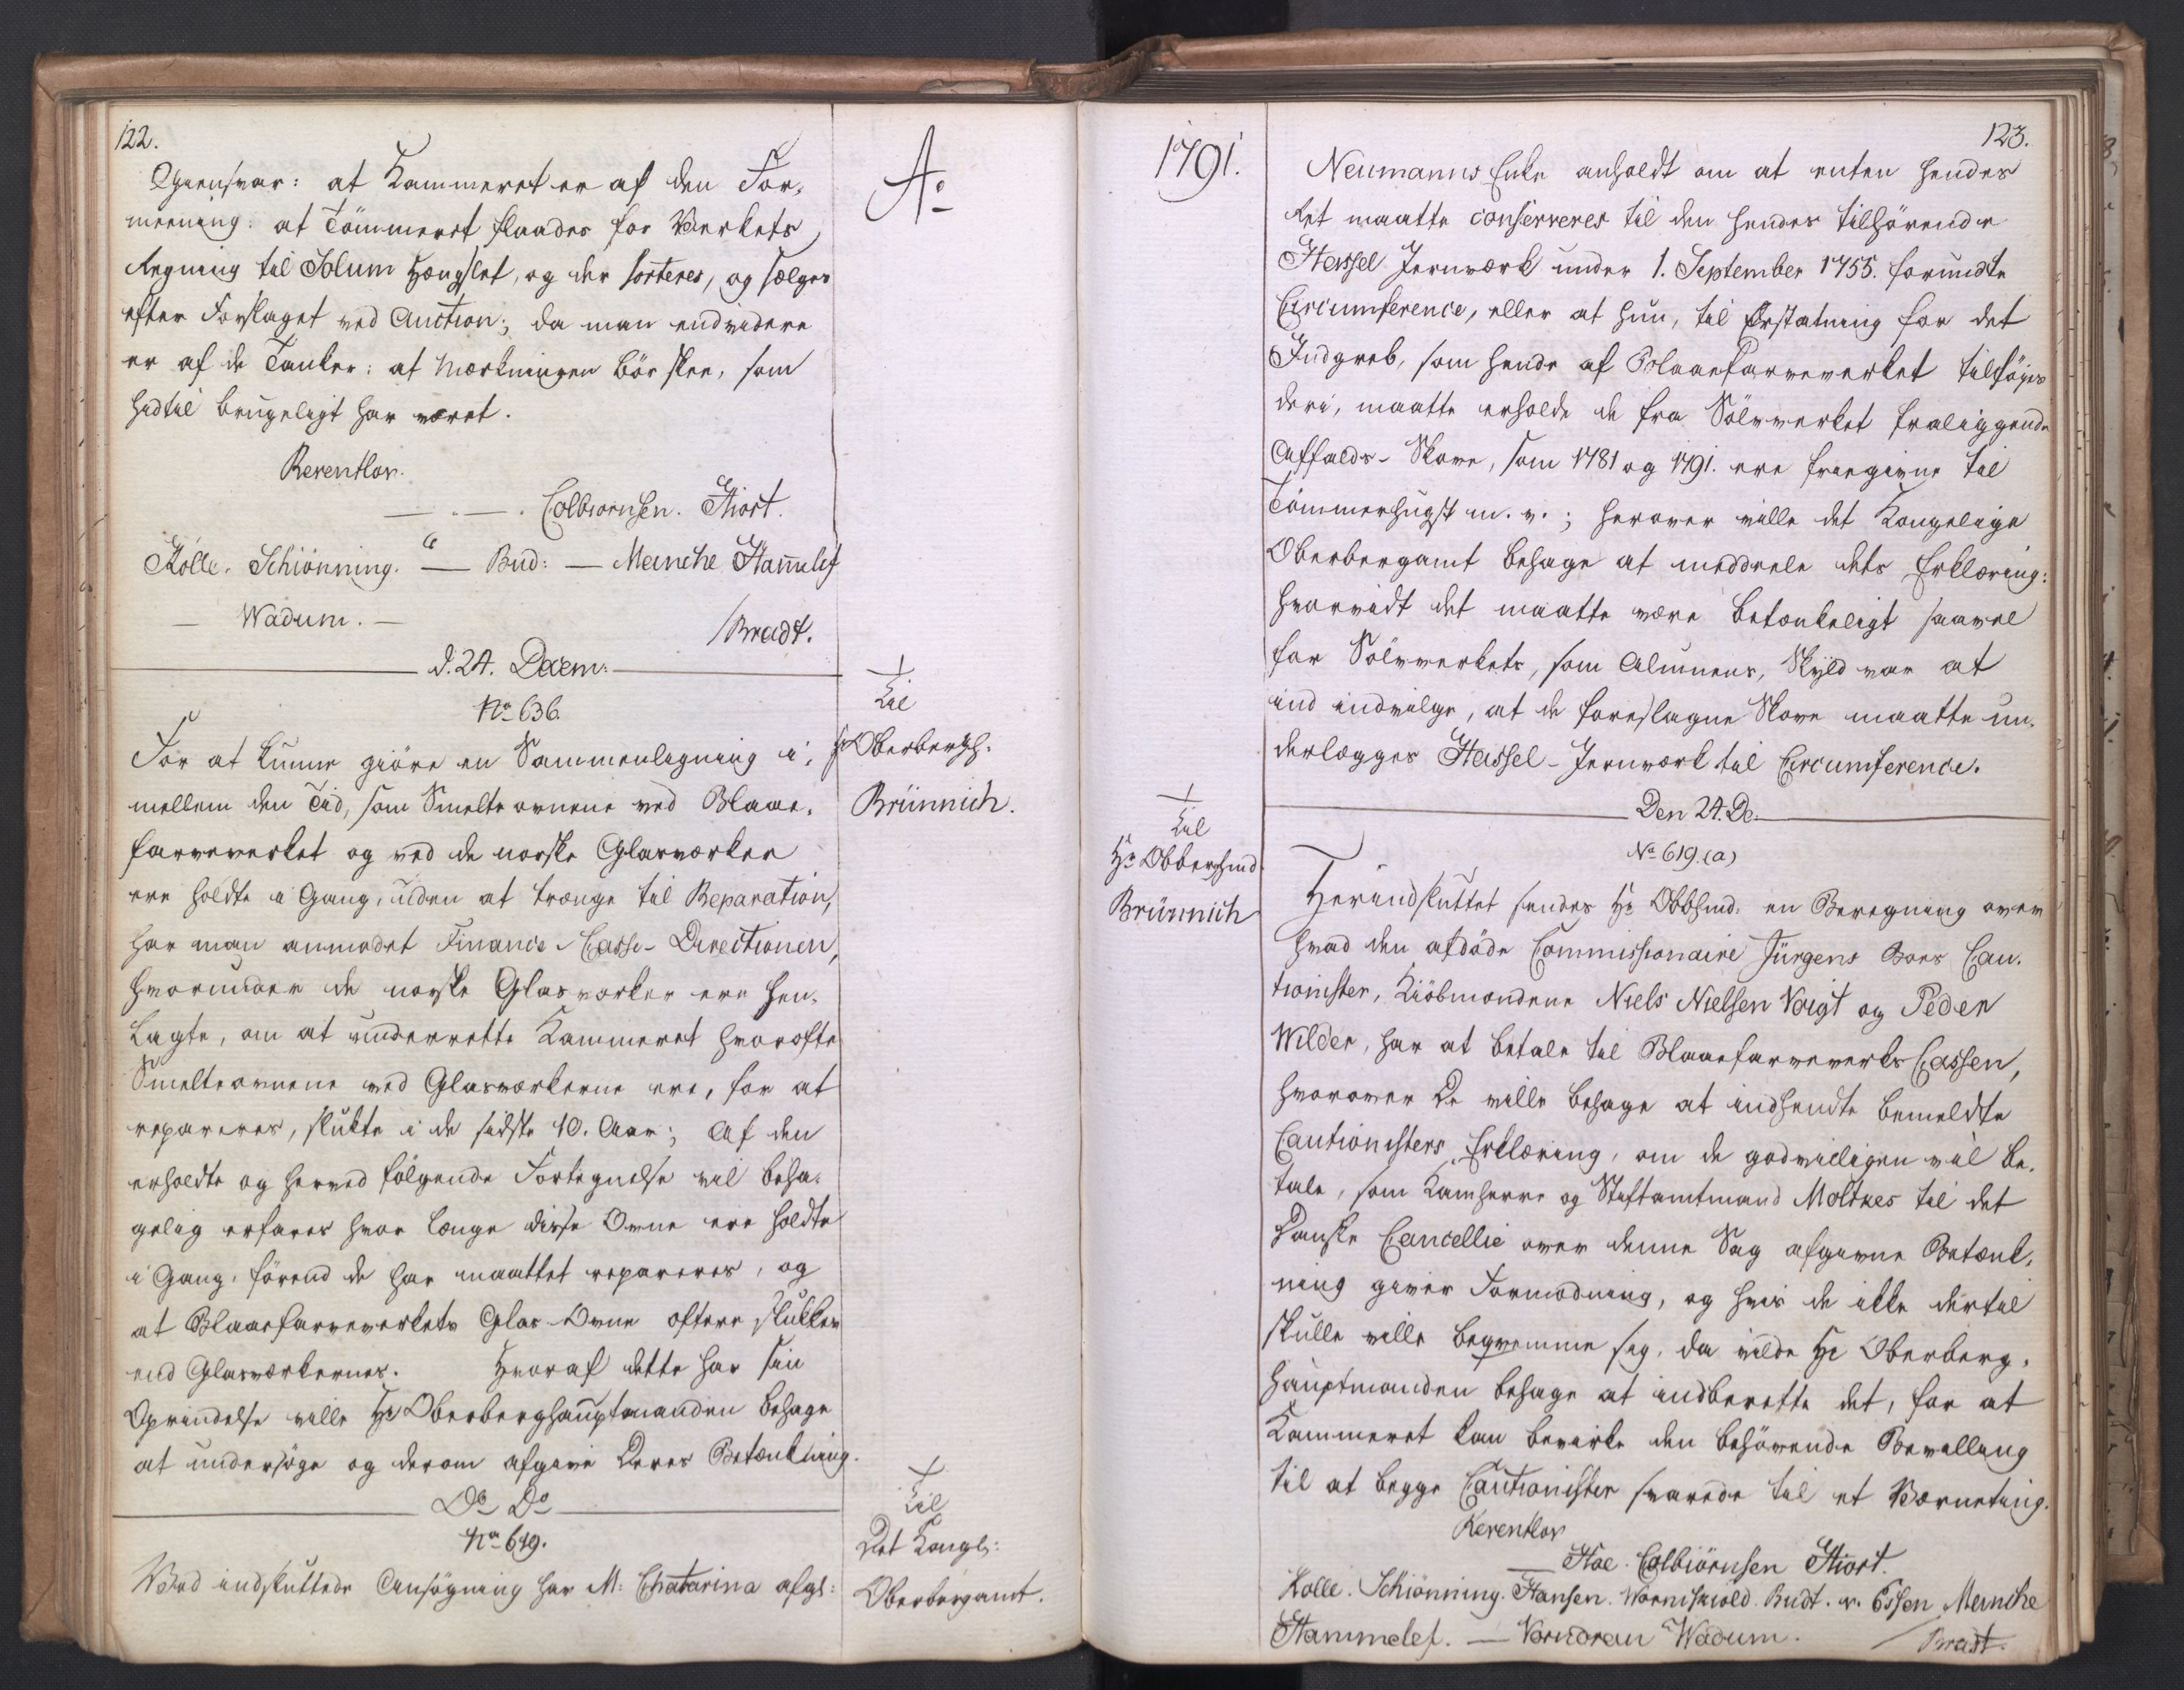 122.
Gjensvar: at Kammeret er af den For-
meening: at Tömmeret flaades for Verkets
Regning til Solum Hængslet, og der sorteres, og sælges
efter Forslaget ved Auction; da man endvidere
er af de Tanker: at Mærkningen bör skee, som
hidtil brugeligt har været.
Reventlov.
— . — . Colbiörnsen. Hiort.
Kölle. Schiönning. — Bud: — Meinche Hammelef
— Wadum. —
/Bradt.
d. 24. Decem:
No 636.
For at kunne giöre en Sammenligning i-
mellem den Tid, som Smelteovnene ved Blaae-
farveverket og ved de norske Glasværker
ere holdte i Gang, uden at trænge til Reparation,
har man anmodet Finance-Casse-Directionen,
hvorunder de norske Glasværker ere hen-
lagte, om at underrette Kammeret hvorofte
Smelteovnene ved Glasværkerne ere, for at
repareres, slukte i de sidste 10. Aar; Af den
erholdte og herved fölgende Fortegnelse vil beha-
gelig erfares hvor længe disse Ovne ere holdte
i Gang, förend de har maattet repareres, og
at Blaaefarveverkets Glas-Ovne oftere slukkes
end Glasværkernes. Hvoraf dette har sin
Oprindelse ville Hr Oberberghauptmanden behage
at undersöge og derom afgive Deres Betænkning.
Do Do
No 619.
Ved indsluttede Ansögning har M: Chatarina afgl:
Ao
Til
Hr Oberbergh:
Brünnich.
Til
Det Kongl:
Oberbergamt.
1791.
Til
Hr Obberghmd
Brünnich
123.
Neumanns Enke anholdt om at enten hendes
Ret maatte conserveres til den hendes tilhörende
Hassel Jernværk under 1. September 1755. forundte
Circumference, eller at hun, til Erstatning for det
Indgreb, som hende af Blaaefarveverket tilföyes
deri, maatte erholde de fra Sölvverket fraliggende
Affalds-Skove, som 1781 og 1791. ere friegivne til
Tömmerhugst m. v.; herover ville det Kongelige
Oberbergamt behage at meddeele dets Erklæring:
hvorvidt det maatte være betænkeligt saavel
for Sölvverkets, som Almuens, Skyld var at
ind indvilge, at de foreslagne Skove maatte un-
derlægges Hassel-Jernværk til Circumference.
Den 24. De.
No 619. (a)
Herindsluttet sendes Hr Obbhmd. en Beregning over
hvad den afdöde Commissionaire Jürgens Boes Cau-
tionister, Kiöbmændene Niels Nielsen Voigt og Peder
Wilder, har at betale til Blaaefarveverks Cassen,
hvorover De ville behage at indhendte bemeldte
Cautionisters Erklæring, om de godvilligen vil be-
tale, som Kamherre og Stiftamtmand Moltkes til det
Danske Cancellie over denne Sag afgivne Betænk-
ning giver Formodning, og hvis de ikke dertil
skulle ville beqvemme sig, da vilde Hr Oberberg-
hauptmanden behage at indberette det, for at
Kammeret kan bevirke den behövende Bevilling
til at begge Cautionister svarede til et Værneting.
Reventlov
— Hoe. Colbiörnsen Hiort.
Kolle. Schiönning. Hansen. Wormskiold. Budt. v. Essen Meinche
Hammelef. — Vorndran Wadum. / Bradt.